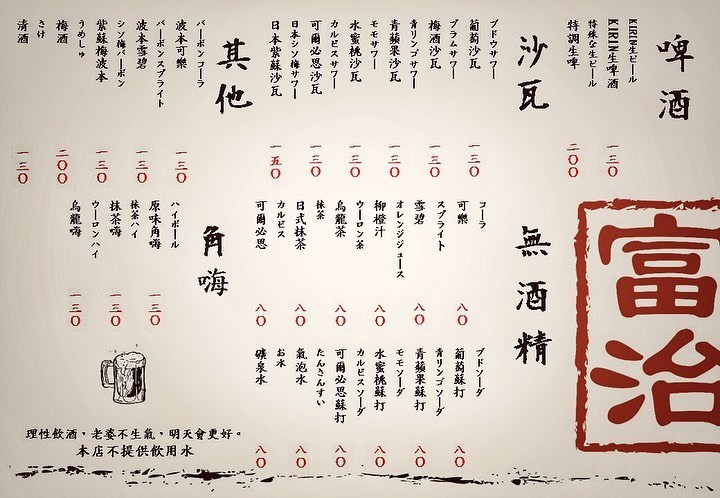 啤酒
KIRIN生ビール
KIRIN生啤酒
一三〇
特殊な生ビール
特調生啤
二〇〇
沙瓦
ブドウサワー
葡萄沙瓦
一三〇
プラムサワー
梅酒沙瓦
一三〇
青リンゴサワー
青蘋果沙瓦
一三〇
モモサワー
水蜜桃沙瓦
一三〇
カルピスサワー
可爾必思沙瓦
一三〇
日本シソ梅サワー
日本紫蘇沙瓦
一五〇
其他
バーボンコーラ
波本可樂
一三〇
バーボンスプライト
波本雪碧
一三〇
シソ梅バーボン
紫蘇梅波本
一三〇
うめしゅ
梅酒
二〇〇
さけ
清酒
一三〇
無酒精
コーラ
可樂
八〇
スプライト
雪碧
八〇
オレンジジュース
柳橙汁
八〇
ウーロン茶
烏龍茶
八〇
抹茶
日式抹茶
八〇
カルピス
可爾必思
八〇
ブドソーダ
葡萄蘇打
八〇
青リンゴソーダ
青蘋果蘇打
八〇
モモソーダ
水蜜桃蘇打
八〇
カルピスソーダ
可爾必思蘇打
八〇
たんさんすい
氣泡水
八〇
お水
礦泉水
八〇
角嗨
ハイボール
原味角嗨
一三〇
抹茶ハイ
抹茶嗨
一三〇
ウーロンハイ
烏龍嗨
一三〇
富治
理性飲酒，老婆不生氣，明天會更好。
本店不提供飲用水